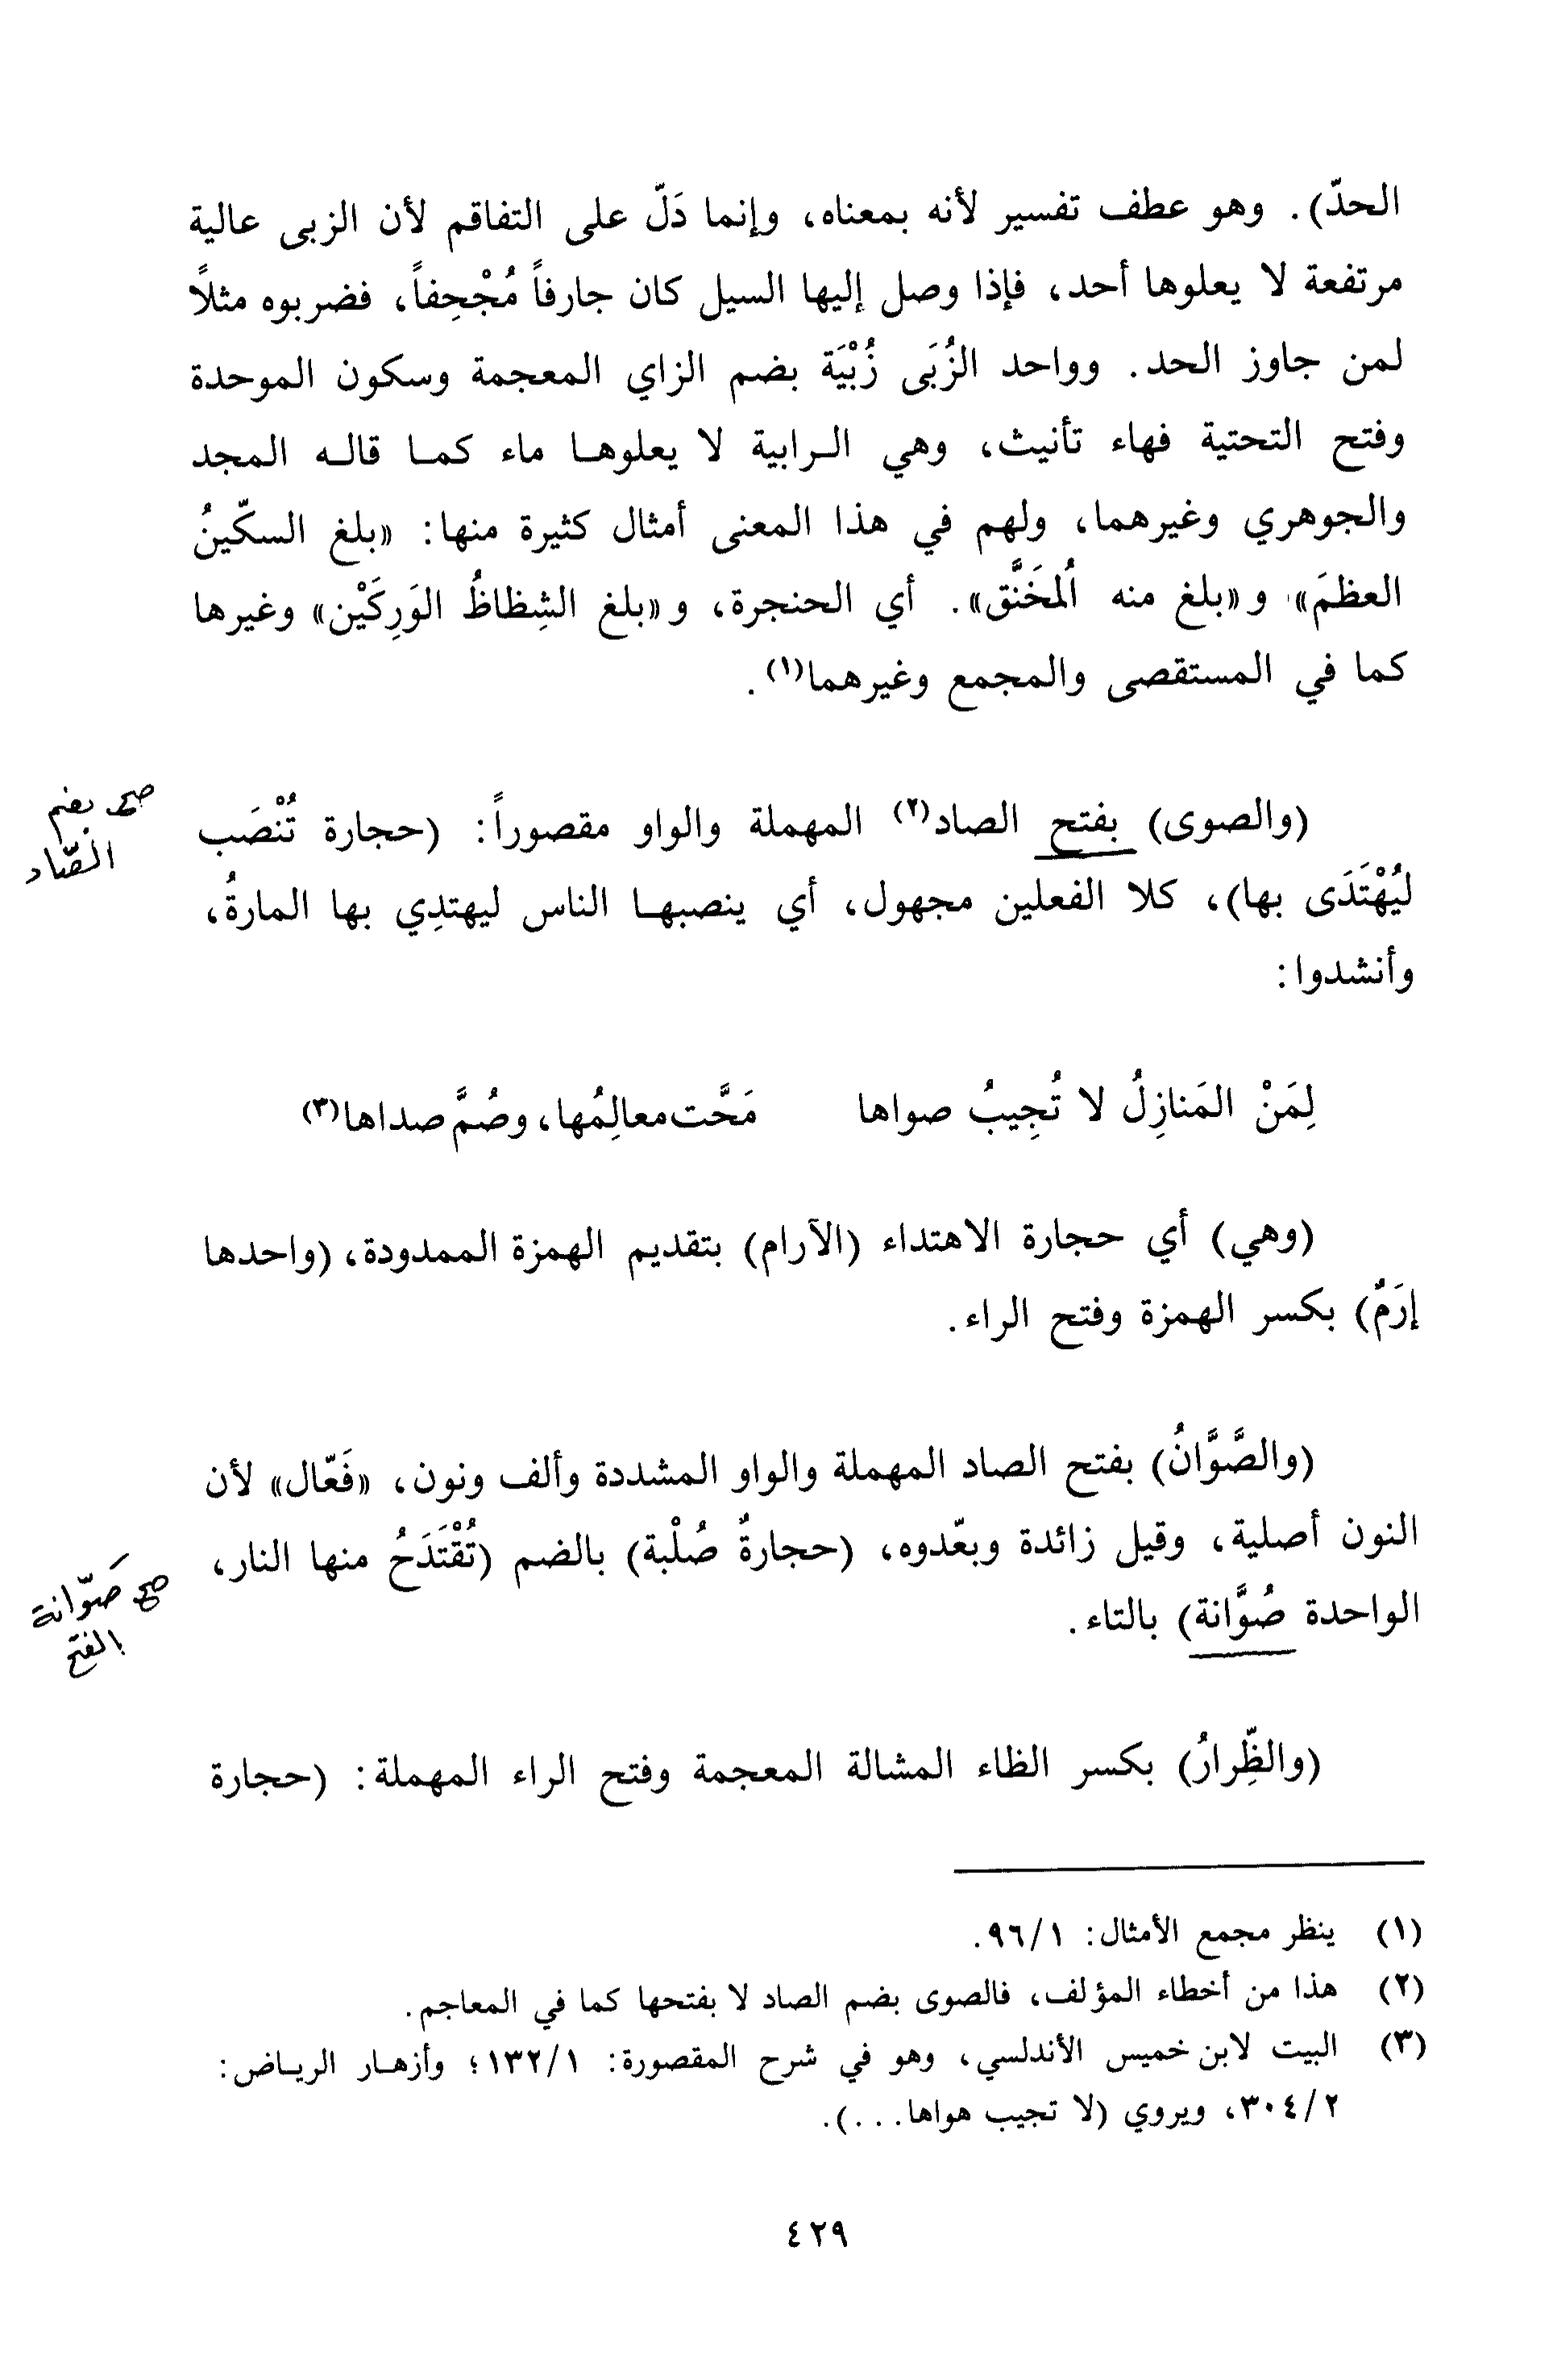 الحدّ). وهو عطف تفسير لأنه بمعناه، وإنما دَلّ على التفاقم لأن الزبى عالية
مرتفعة لا يعلوها أحد، فإذا وصل إليها السيل كان جارفاً مُجْحِفاً، فضربوه مثلاً
لمن جاوز الحد. وواحد الزُبَى زُبْيَة بضم الزاي المعجمة وسكون الموحدة
وفتح التحتية فهاء تأنيث، وهي الـرابية لا يعلوهـا ماء كمـا قالـه المجد
والجوهري وغيرهما، ولهم في هذا المعنى أمثال كثيرة منها: «بلغ السكّينُ
العظمَ» و«بلغ منه اُلمُخَنَّق». أي الحنجرة، و«بلغ الشِظاظُ الوَرِكَيْن» وغيرها
كما في المستقصى والمجمع وغيرهما(١).
(والصوى) بفتح الصاد(٢) المهملة والواو مقصوراً: (حجارة تُنْصَب
صح بضم
الصّاد
ليُهْتَدَى بها)، كلا الفعلين مجهول، أي ينصبهـا الناس ليهتدِي بها المارةُ،
وأنشدوا:
لِمَنْ المَنازِلُ لا تُجِيبُ صواها مَحَّت معالِمُها، وصُمَّ صداها(٣)
(وهي) أي حجارة الاهتداء (الآرام) بتقديم الهمزة الممدودة، (واحدها
إرَمٌ) بكسر الهمزة وفتح الراء.
(والصَّوَّانُ) بفتح الصاد المهملة والواو المشددة وألف ونون، «فَعّال» لأن
النون أصلية، وقيل زائدة وبعّدوه، (حجارةٌ صُلْبة) بالضم (تُقْتَدَحُ منها النار،
صح صَوّانة
بالفتح
الواحدة صُوَّانة) بالتاء.
(والظِّرارُ) بكسر الظاء المشالة المعجمة وفتح الراء المهملة: (حجارة
(١) ينظر مجمع الأمثال: ٩٦/١.
(٢) هذا من أخطاء المؤلف، فالصوى بضم الصاد لا بفتحها كما في المعاجم.
(٣) البيت لابن خميس الأندلسي، وهو في شرح المقصورة: ١٣٢/١؛ وأزهـار الريـاض:
٣٠٤/٢، ويروي (لا تجيب هواها...).
٤٢٩